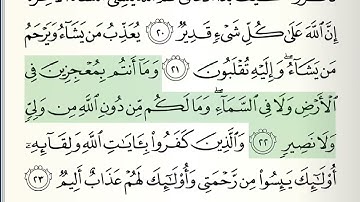 إِنَّ ٱللَّهَ عَلَىٰ كُلِّ شَىْءٍ قَدِيرٌ ٢٠ يُعَذِّبُ مَن يَشَآءُ وَيَرْحَمُ
مَن يَشَآءُ ۖ وَإِلَيْهِ تُقْلَبُونَ ٢١ وَمَآ أَنتُم بِمُعْجِزِينَ فِى
ٱلْأَرْضِ وَلَا فِى ٱلسَّمَآءِ ۖ وَمَا لَكُم مِّن دُونِ ٱللَّهِ مِن وَلِىٍّ
وَلَا نَصِيرٍ ٢٢ وَٱلَّذِينَ كَفَرُوا۟ بِـَٔايَـٰتِ ٱللَّهِ وَلِقَآئِهِۦٓ
أُو۟لَـٰٓئِكَ يَئِسُوا۟ مِن رَّحْمَتِى وَأُو۟لَـٰٓئِكَ لَهُمْ عَذَابٌ أَلِيمٌ ٢٣